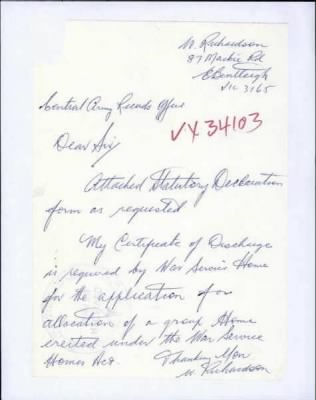 W. Richardson
87 Mackie Rd
E Bentleigh
Vic 3165
Central Army Records Office
VX34103
Dear Sir
Attached Statutory Declaration
form as requested
My Certificate of Discharge
is required by War Service Home
for the application for
allocation of a group Home
erected under the War Service
Homes Act.
Thanking You
W. Richardson